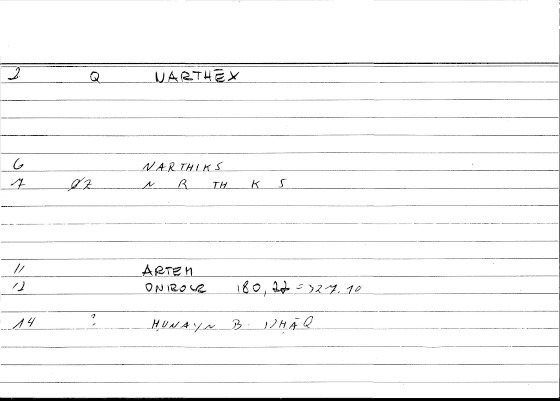 2 Q NARTHĒX
6 NARTHIKS
7 N R TH K S
11 ARTEM
12 ONIROCR 180,
14 ? ḤUNAYN B. ISḤĀQ